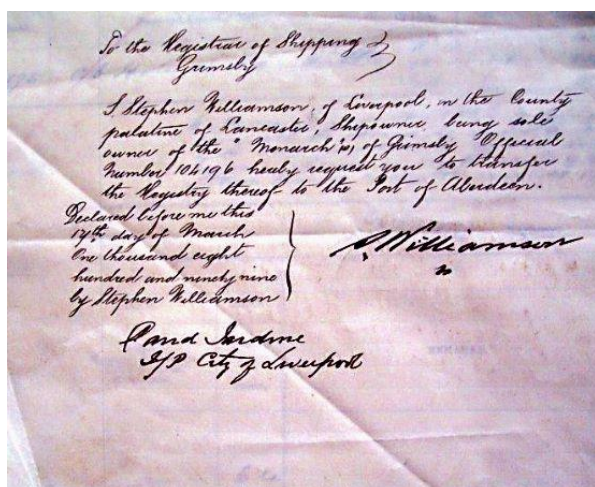 To the Registrar of Shipping
Grimsby
I Stephen Williamson, of Liverpool, in the County
palatine of Lancaster, Shipowner, being sole
owner of the "Monarch" of Grimsby Official
Number 104196 hereby request you to transfer
the Registry thereof to the Port of Aberdeen.
Declared before me this
17th day of March
One thousand eight
hundred and ninety nine
by Stephen Williamson
S. Williamson
Jardine
J/P City of Liverpool